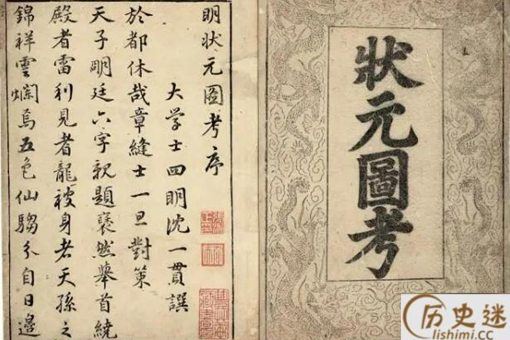 狀元圖考
明狀元圖考序
大学士四明沈一貫譔
於都休哉章縫士一旦對策
天子明廷六字親題褎然舉首繞
殿者雷利見者龍被身者天孫之
錦祥雲爛焉五色仙騶分自日邊
历史迷
lishimi.cc